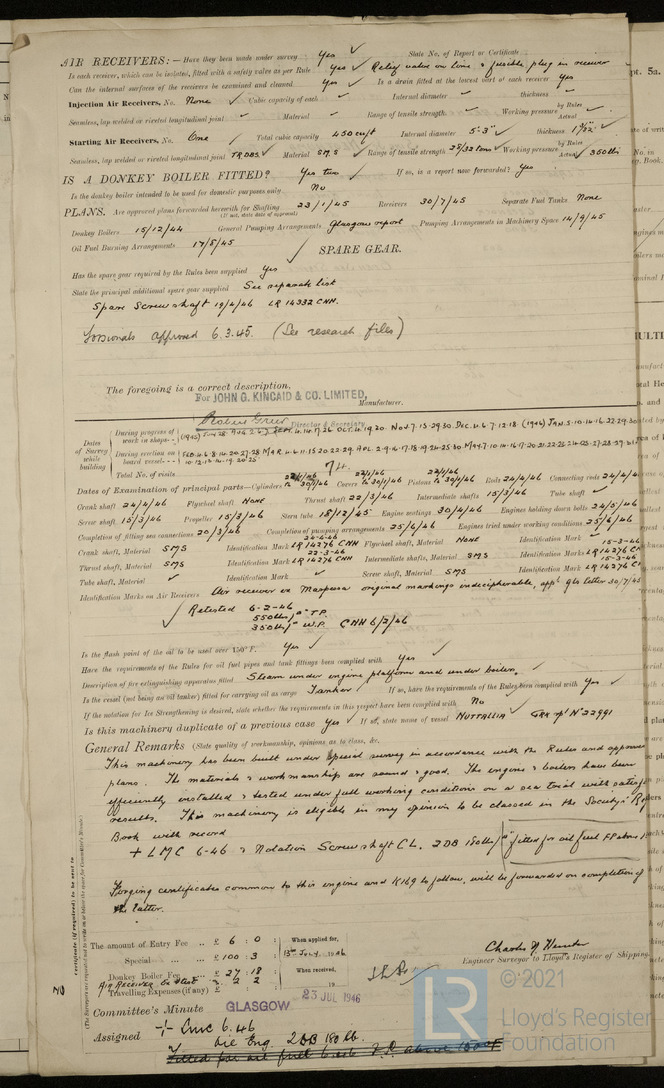 AIR RECEIVERS:— Have they been made under survey Yes ✓ State No. of Report or Certificate
Is each receiver, which can be isolated, fitted with a safety valve as per Rule Yes ✓ Relief valve on line & fusible plug in receiver
Can the internal surfaces of the receivers be examined and cleaned Yes ✓ Is a drain fitted at the lowest part of each receiver Yes
Injection Air Receivers, No. None ✓ Cubic capacity of each ✓ Internal diameter ✓ thickness ✓
Seamless, lap welded or riveted longitudinal joint ✓ Material ✓ Range of tensile strength ✓ Working pressure by Rules Actual
Starting Air Receivers, No. One ✓ Total cubic capacity 450 cu ft Internal diameter 5'-3" ✓ thickness
Seamless, lap welded or riveted longitudinal joint TRDBS ✓ Material S.M.S ✓ Range of tensile strength 28/32 tons ✓ Working pressure by Rules Actual 350 lbs
IS A DONKEY BOILER FITTED? Yes two ✓ If so, is a report now forwarded? Yes
Is the donkey boiler intended to be used for domestic purposes only No
PLANS. Are approved plans forwarded herewith for Shafting 23/1/45 Receivers 30/7/45 Separate Fuel Tanks None
(If not, state date of approval)
Donkey Boilers 15/12/44 General Pumping Arrangements Glasgow report Pumping Arrangements in Machinery Space 14/9/45
Oil Fuel Burning Arrangements 17/5/45
SPARE GEAR.
Has the spare gear required by the Rules been supplied Yes
State the principal additional spare gear supplied See separate list
Spare Screw shaft 19/4/46 LR 14332 CNH.
Torsionals approved 6.3.45. (See research files)
The foregoing is a correct description,
For JOHN G. KINCAID & CO. LIMITED,
Manufacturer.
Director & Secretary
Dates of Survey while building
During progress of work in shops
During erection on board vessel
Total No. of visits 74.
Dates of Examination of principal parts—Cylinders 30/1/46 Covers 30/1/46 Pistons 30/1/46 Rods 24/4/46 Connecting rods 24/4/4
Crank shaft 24/4/46 Flywheel shaft NONE Thrust shaft 22/3/46 Intermediate shafts 15/3/46 Tube shaft ✓
Screw shaft 15/3/46 Propeller 15/3/46 Stern tube 18/12/45 Engine seatings 30/4/46 Engines holding down bolts 24/5/46
Completion of fitting sea connections 20/3/46 Completion of pumping arrangements 25/6/46 Engines tried under working conditions 25/6/46
Crank shaft, Material SMS Identification Mark LR 14276 CNH 24-6-46 Flywheel shaft, Material NONE Identification Mark ✓
Thrust shaft, Material SMS Identification Mark LR 14276 CNH 22-3-46 Intermediate shafts, Material SMS Identification Marks LR 14276 15-3-46
Tube shaft, Material ✓ Identification Mark ✓ Screw shaft, Material SMS Identification Mark LR 14276 15-3-46
Identification Marks on Air Receivers Air receiver ex original markings indecipherable, app'd Gls letter 30/7/45
✓ Retested 6-2-46
550 lbs/□" T.P.
350 lbs/□" W.P. CNH 6/2/46
Is the flash point of the oil to be used over 150° F. Yes ✓
Have the requirements of the Rules for oil fuel pipes and tank fittings been complied with Yes ✓
Description of fire extinguishing apparatus fitted Steam under engine platform and under boilers.
Is the vessel (not being an oil tanker) fitted for carrying oil as cargo Tanker If so, have the requirements of the Rules been complied with Yes ✓
If the notation for Ice Strengthening is desired, state whether the requirements in this respect have been complied with No
Is this machinery duplicate of a previous case Yes ✓ If so, state name of vessel NUTTALLIA ✓ GRK rpt No 22991
General Remarks (State quality of workmanship, opinions as to class, &c.
This machinery has been built under Special survey in accordance with the Rules and approved
plans. The materials & workmanship are sound & good. The engine & boilers have been
efficiently installed & tested under full working conditions on a sea trial with satisf
results. This machinery is eligible in my opinion to be classed in the Society's Reg
Book with record
+ LMC 6-46 & Notation Screw shaft CL. 2DB 180 lbs/□" fitted for oil fuel F.P. above
Forging certificates common to this engine and K169 to follow, will be forwarded on completion of
the latter.
The amount of Entry Fee .. £ 6 : 0 : When applied for,
Special ... £ 100 : 3 : 13th July 1946
Donkey Boiler Fee ... £ 27 : 18 : When received,
Travelling Expenses (if any) £ 19
Charles N. Hunter
Engineer Surveyor to Lloyd's Register of Shipping.
Committee's Minute GLASGOW 23 JUL 1946
Assigned + LMC 6.46
Oil Eng. 2DB 180 lb.
© 2021
LR
Lloyd's Register
Foundation